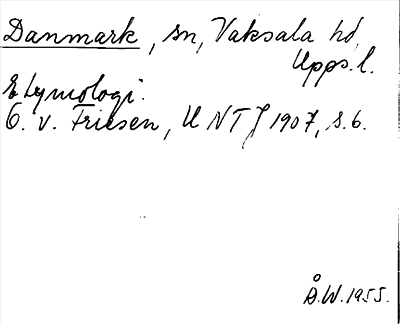 Danmark, sn, Vaksala hd,
Upps. l.
Etymologi.
O. v. Friesen, UNTJ 1907, s. 6.
Å.W. 1955.